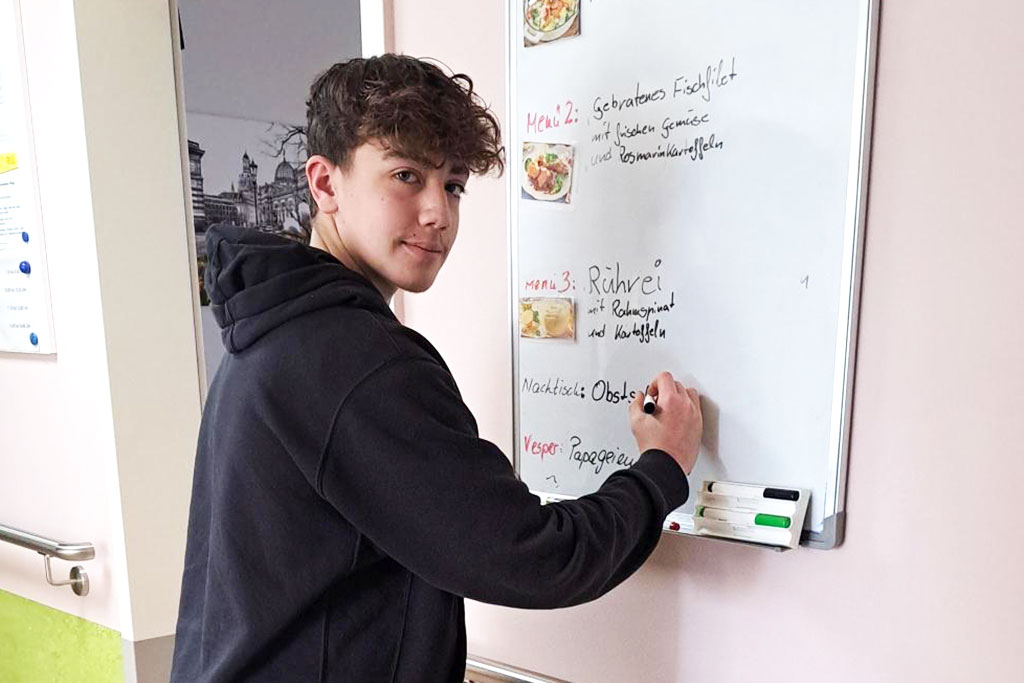 Menü 2: Gebratenes Fischfilet
mit frischen Gemüse
und Rosmarinkartoffeln
Menü 3: Rührei
mit Rahmspinat
und Kartoffeln
Nachtisch: Obsts
Vesper: Papageien